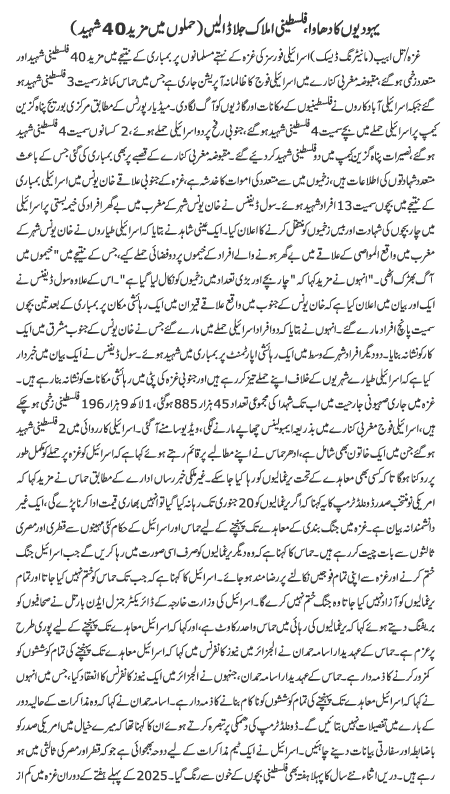 یہودیوں کا دھاوا، فلسطینی املاک جلا ڈالیں (حملوں میں مزید 40 شہید)
غزہ/ تل ابیب (مانیٹرنگ ڈیسک) اسرائیلی فورسز کی غزہ کے نہتے مسلمانوں پر بمباری کے نتیجے میں مزید 40 فلسطینی شہید اور
متعدد زخمی ہو گئے، مقبوضہ مغربی کنارے میں اسرائیلی فوج کا ظالمانہ آپریشن جاری ہے جس میں حماس کمانڈر سمیت 3 فلسطینی شہید ہو
گئے جبکہ اسرائیلی آباد کاروں نے فلسطینیوں کے مکانات اور گاڑیوں کو آگ لگا دی۔ میڈیا رپورٹس کے مطابق مرکزی بوریج پناہ گزین
کیمپ پر اسرائیلی حملے میں بچے سمیت 4 فلسطینی شہید ہو گئے، جنوبی رفح پر دو اسرائیلی حملے ہوئے، 2 کسانوں سمیت 4 فلسطینی شہید
ہو گئے، نصیرات پناہ گزین کیمپ میں دو فلسطینی شہید کر دیئے گئے۔ مقبوضہ مغربی کنارے کے قصبے پر بھی بمباری کی گئی جس کے باعث
متعدد شہادتوں کی اطلاعات ہیں، زخمیوں میں سے متعدد کی اموات کا خدشہ ہے، غزہ کے جنوبی علاقے خان یونس میں اسرائیلی بمباری
میں بچوں سمیت 13 افراد شہید ہوئے۔ سول ڈیفنس نے خان یونس شہر کے مغرب میں بے گھر افراد کی خیمہ بستی پر اسرائیلی حملے
میں چار بچوں کی شہادت اور بیس زخمیوں کو منتقل کرنے کا اعلان کیا۔ ایک عینی شاہد نے بتایا کہ اسرائیلی طیاروں نے خان یونس شہر کے
مغرب میں واقع المواصی کے علاقے میں بے گھر ہونے والے افراد کے خیموں پر دو فضائی حملے کیے، جس کے نتیجے میں "خیموں میں
آگ بھڑک اٹھی۔" انہوں نے مزید کہا کہ "چار بچے اور بڑی تعداد میں زخمیوں کو نکال لیا گیا ہے"۔ اس کے علاوہ سول ڈیفنس نے
ایک اور بیان میں اعلان کیا ہے کہ خان یونس کے جنوب میں واقع علاقے قیزان میں ایک رہائشی مکان پر بمباری کے بعد تین بچوں
سمیت پانچ افراد مارے گئے۔ انہوں نے بتایا کہ دو افراد اسرائیلی حملے میں مارے گئے جس نے خان یونس کے جنوب مشرق میں ایک
کار کو نشانہ بنایا۔ دو دیگر افراد شہر کے وسط میں ایک رہائشی اپارٹمنٹ پر بمباری میں شہید ہوئے۔ سول ڈیفنس نے ایک بیان میں خبردار
کیا ہے کہ اسرائیلی طیارے شہریوں کے خلاف اپنے حملے تیز کر رہے ہیں اور جنوبی غزہ کی پٹی میں رہائشی مکانات کو نشانہ بنا رہے ہیں۔
غزہ میں جاری صہیونی جارحیت میں اب تک شہدا کی مجموعی تعداد 45 ہزار 885 ہو گئی، 1 لاکھ 9 ہزار 196 فلسطینی زخمی ہو چکے
ہیں، اسرائیلی فوج مغربی کنارے میں بذریعہ ایمبولینس چھاپے مارنے لگی، ویڈیو سامنے آگئی۔ اسرائیلی کارروائی میں 2 فلسطینی شہید
ہو گئے جن میں ایک خاتون بھی شامل ہے، ادھر حماس نے اپنے مطالبے پر قائم رہتے ہوئے کہا ہے کہ اسرائیل کو غزہ پر حملے کو مکمل طور
پر روکنا ہو گا تا کہ کسی بھی معاہدے کے تحت یرغمالیوں کو رہا کیا جا سکے۔ غیر ملکی خبر رساں ادارے کے مطابق حماس نے مزید کہا کہ
امریکی نو منتخب صدر ڈونلڈ ٹرمپ کا یہ کہنا کہ اگر یرغمالیوں کو 20 جنوری تک رہا نہ کیا گیا تو انہیں بھاری قیمت ادا کرنا پڑے گی، ایک غیر
دانشمندانہ بیان ہے۔ غزہ میں جنگ بندی کے معاہدے تک پہنچنے کے لیے حماس اور اسرائیل کے حکام کئی مہینوں سے قطری اور مصری
ثالثوں سے بات چیت کر رہے ہیں۔ حماس کا کہنا ہے کہ وہ دیگر یرغمالیوں کو صرف اسی صورت میں رہا کریں گے جب اسرائیل جنگ
ختم کرنے اور غزہ سے اپنی تمام فوجیں نکالنے پر رضامند ہو جائے۔ اسرائیل کا کہنا ہے کہ جب تک حماس کو ختم نہیں کیا جاتا اور تمام
یرغمالیوں کو آزاد نہیں کیا جاتا وہ جنگ ختم نہیں کرے گا۔ اسرائیل کی وزارت خارجہ کے ڈائریکٹر جنرل ایڈن بارٹل نے صحافیوں کو
بریفنگ دیتے ہوئے کہا کہ یرغمالیوں کی رہائی میں حماس واحد رکاوٹ ہے، اسرائیل معاہدے تک پہنچنے کے لیے پوری طرح
پر عزم ہے۔ حماس کے عہدیدار اسامہ حمدان نے الجزائر میں نیوز کانفرنس میں کہا کہ اسرائیل معاہدے تک پہنچنے کی تمام کوششوں کو
کمزور کرنے کا ذمہ دار ہے۔ حماس کے عہدیدار اسامہ حمدان، جنہوں نے الجزائر میں ایک نیوز کانفرنس کا انعقاد کیا، جس میں انہوں
نے کہا کہ اسرائیل معاہدے تک پہنچنے کی تمام کوششوں کو ناکام بنانے کا ذمہ دار ہے۔ اسامہ حمدان نے کہا کہ وہ مذاکرات کے حالیہ دور
کے بارے میں تفصیلات نہیں بتائیں گے۔ ڈونلڈ ٹرمپ کی دھمکی پر تبصرہ کرتے ہوئے ان کا کہنا تھا کہ میرے خیال میں امریکی صدر کو
باضابطہ اور سفارتی بیانات دینے چاہئیں۔ اسرائیل نے ایک ٹیم مذاکرات کے لیے دوحہ بھجوائی ہے جو کہ قطر اور مصر کی ثالثی میں ہو
رہے ہیں۔ دریں اثناء نئے سال کا پہلا ہفتہ بھی فلسطینی بچوں کے خون سے رنگ گیا۔ 2025 کے پہلے ہفتے کے دوران غزہ میں کم از